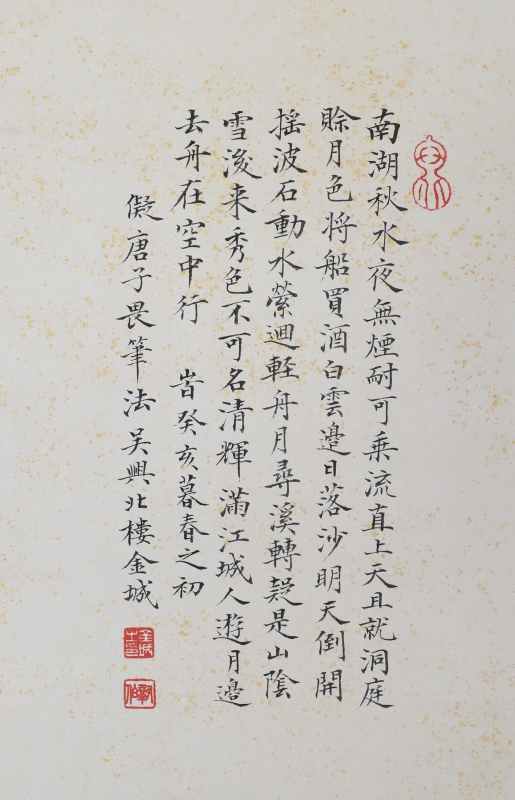 南湖秋水夜無煙耐可乗流直上天且就洞庭
賖月色将船買酒白雲邉日落沙明天倒開
揺波石動水縈迴軽舟月尋溪轉疑是山陰
雪後来秀色不可名清輝滿江城人遊月邊
去舟在空中行 旹癸亥暮春之初
儗唐子畏筆法吴興北樓金城
金城